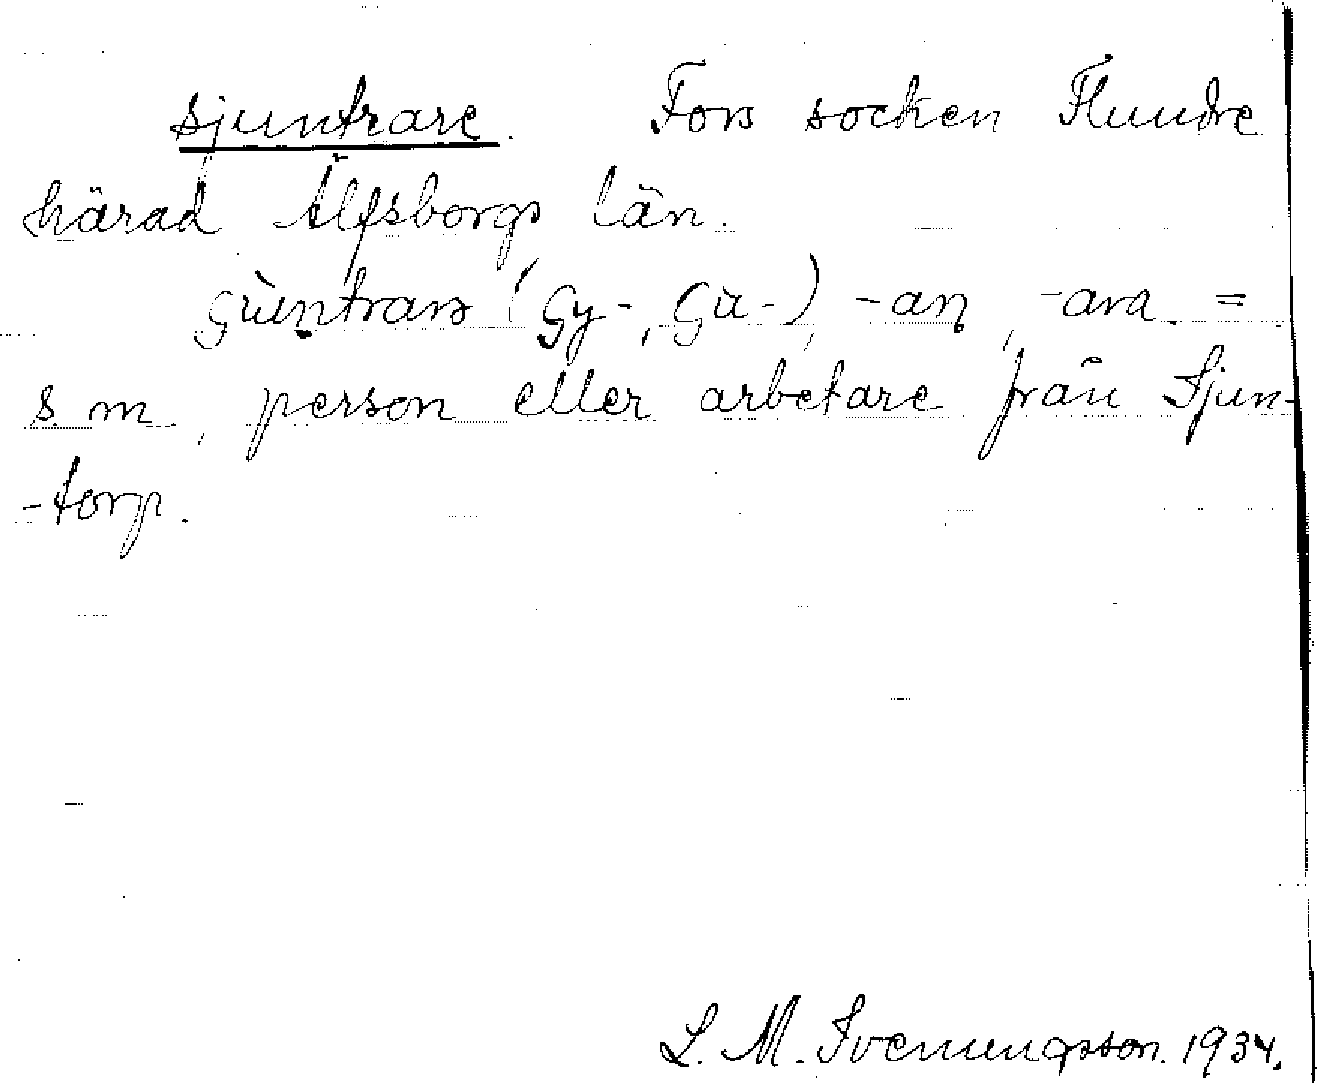 sjuntrare. Fors socken Flundre
härad Älfsborgs län.
(Gy-, Gu-), -an, -ara =
s m, person eller arbetare från Sjun-
-torp.
L. M. Svenungsson. 1934.